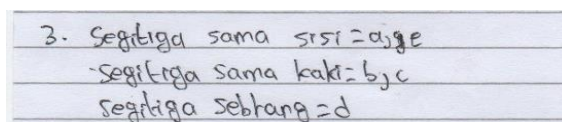 3. Segitiga sama sisi = a, e
- Segitiga sama kaki = b, c
Segitiga sebrang = d